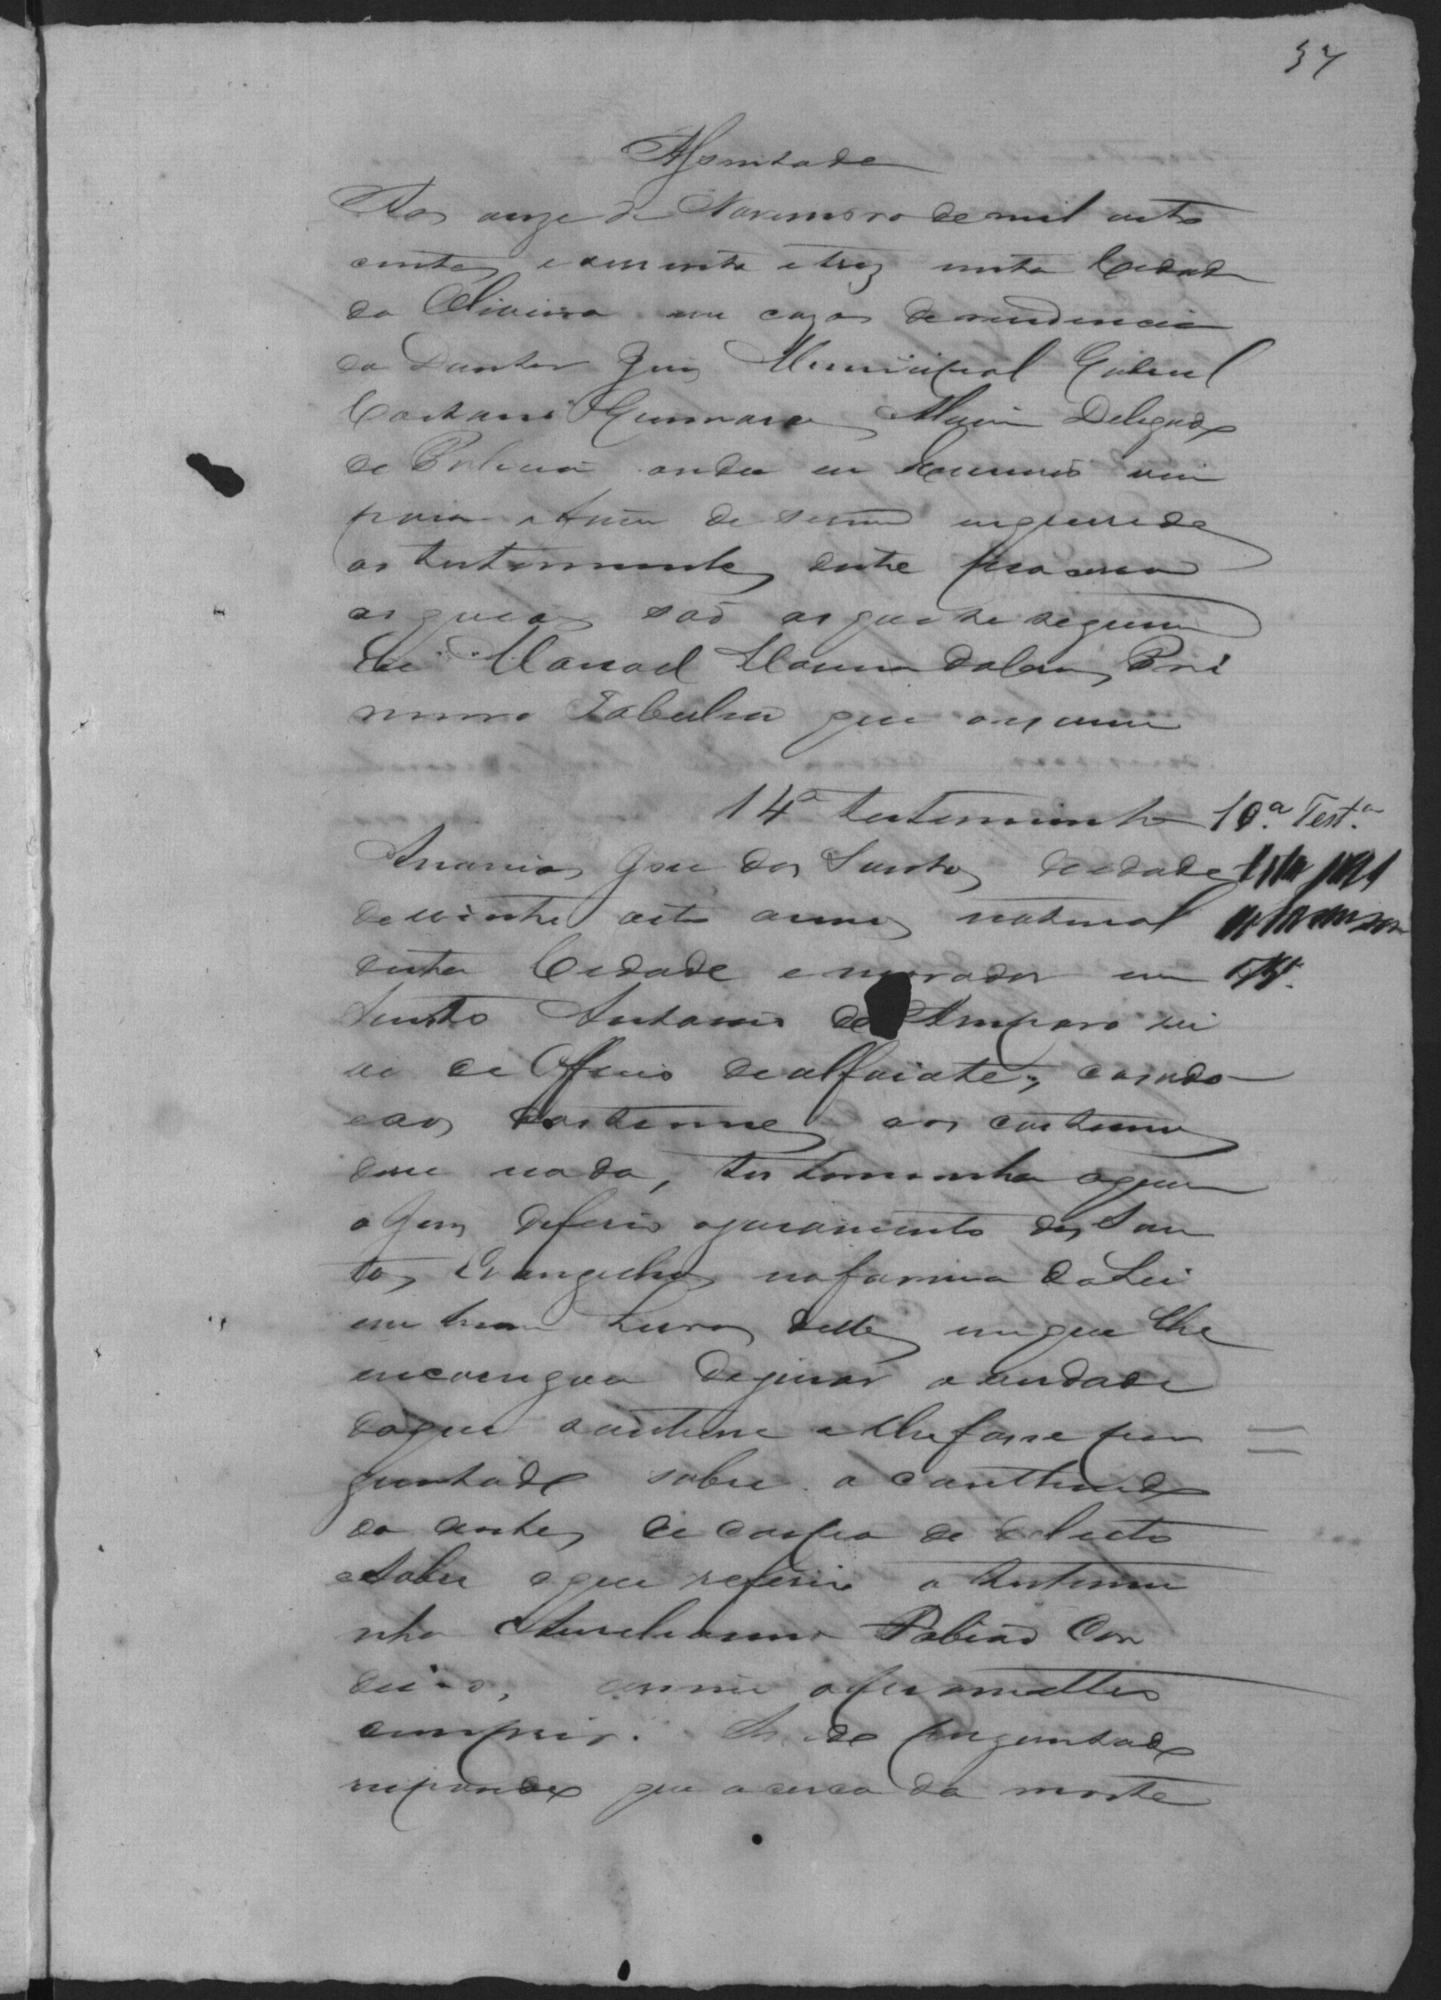 37
Assentada
Aos onze de Novembro de mil oito
centos e secenta e trez nesta Cidade
da Oliveira em cazas de residencia
do Doutor Juiz Municipal Gabriel
Caetano Guimaraes Delegado
de Policia onde eu Escrivão vim
para a fim de serem inqueridas
as testemunhas deste processo
as quaes são as que se seguem
Eu Manoel Pri
meiro Tabelião que escrevi
14ª testemunha 10.ª Test.ª
Anania José dos Santos de idade
de vinte oito annos natural
desta Cidade e morador em
Santo Antonio do Amparo vi
ve de Officio de alfaiate, casado
e aos costumes aos costumes
disse nada, testemunha a quem
o Juiz deferio o juramento dos San
tos Evangelhos na forma da Lei
em hum Livro delles em que lhe
encarregou dejurar a verdade
do que soubesse e lhe fosse per
guntado sobre o contheudo
do autos de corpo de delicto
e sobre o que referio a testemu
nha Aureliano Fabião Cor
deiro, assim o prometteo
cumprir. Sendo perguntado
respondeo que a cerca da morte